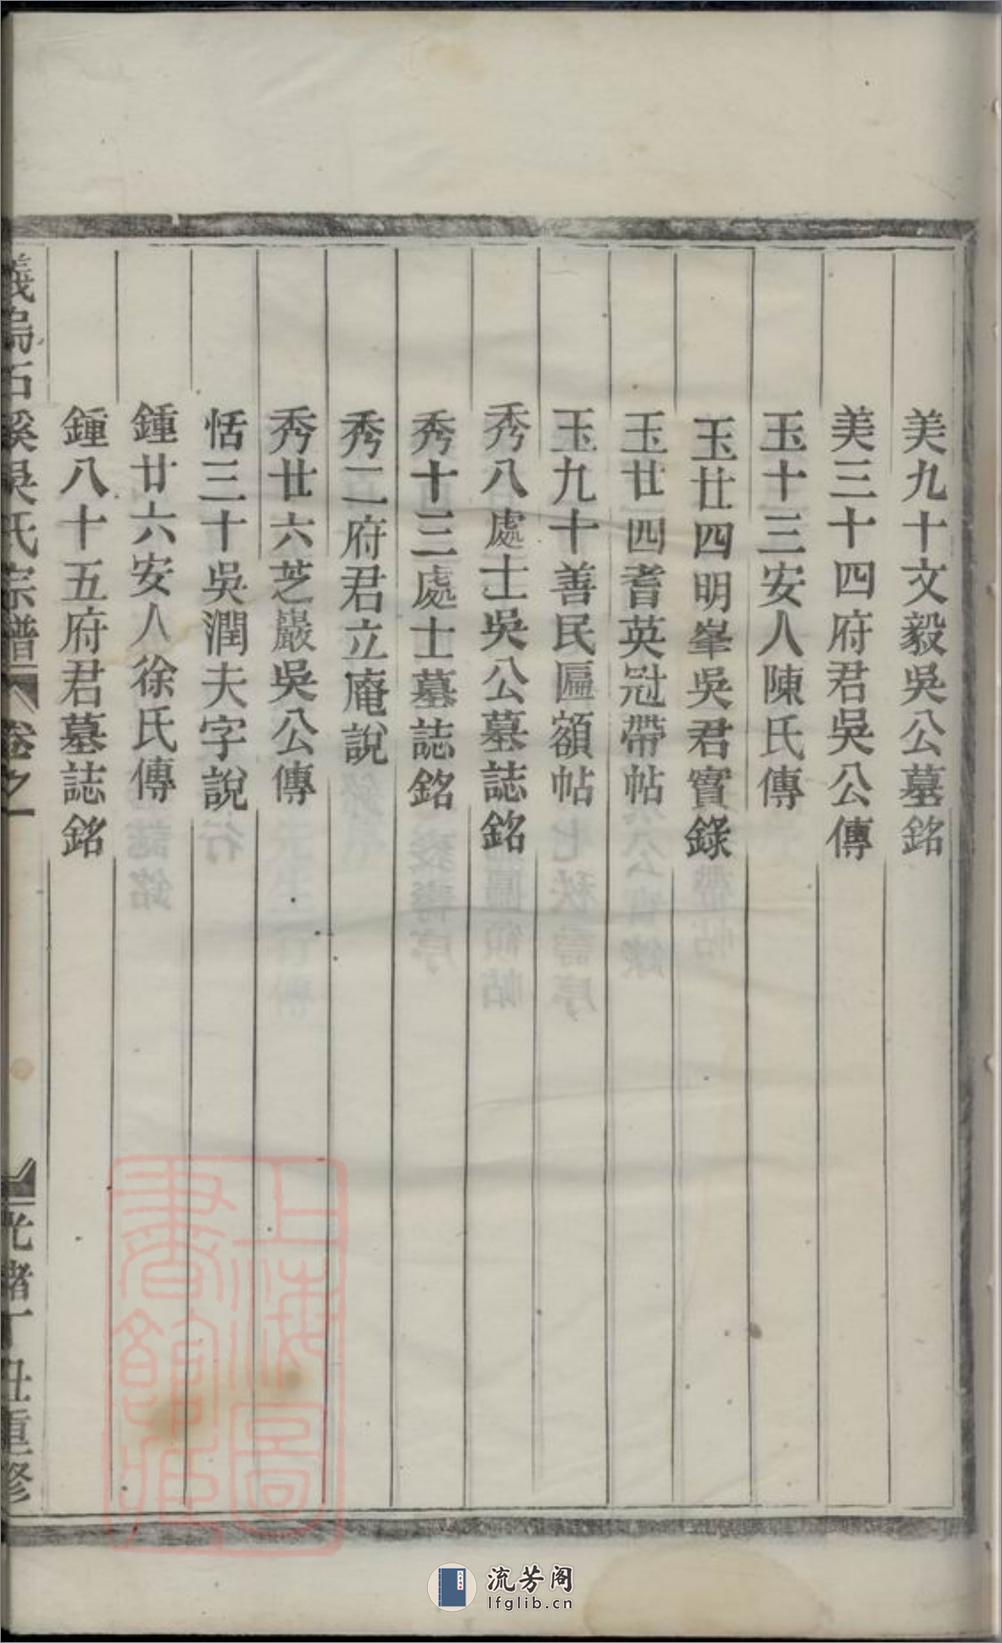 美九十文毅吳公墓銘
美三十四府君吳公傳
玉十三安人陳氏傳
玉廿四明峯吳君實錄
玉廿四耆英冠帶帖
玉九十善民匾額帖
秀八處士吳公墓誌銘
秀十三處士墓誌銘
秀二府君立庵說
秀廿六芝巖吳公傳
恬三十吳潤夫字說
鍾廿六安人徐氏傳
鍾八十五府君墓誌銘
義烏石溪吳氏宗譜 卷之一 光緒丁丑重修
上海圖書館藏
流芳阁
lfglib.cn